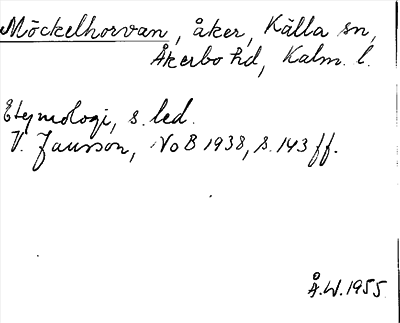 Möckelhorvan, åker, Källa sn,
Åkerbo hd, Kalm. l.
Etymologi, s. led.
V. Jansson, NoB 1938, s. 143 ff.
Å.W. 1955